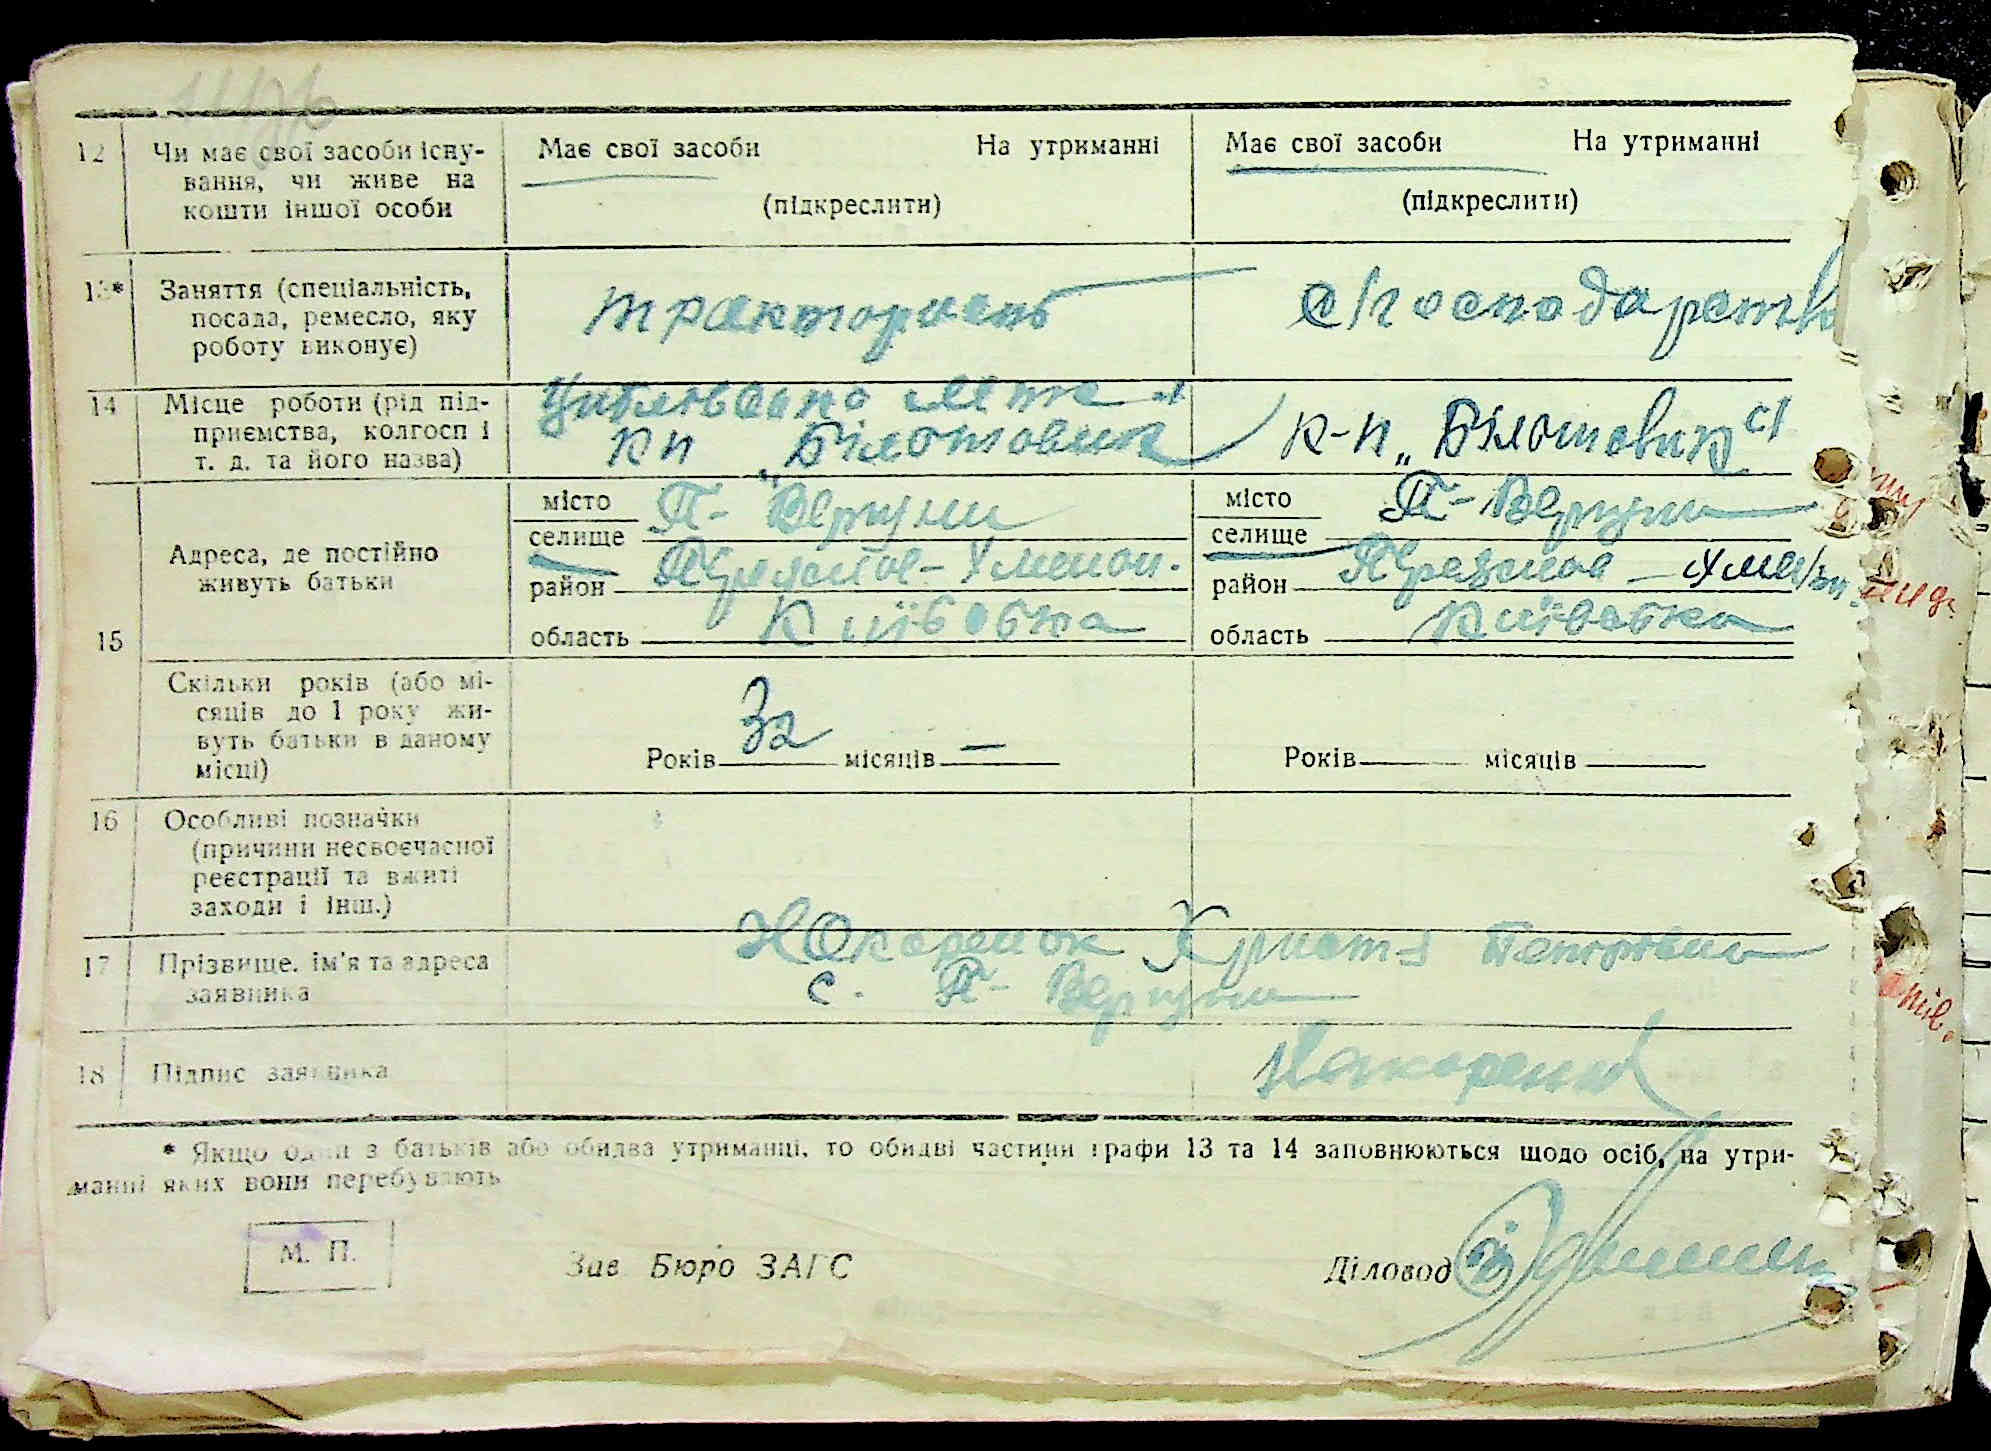 12 Чи має свої засоби існу-
вання, чи живе на
кошти іншої особи
Має свої засоби На утриманні
(підкреслити)
Має свої засоби На утриманні
(підкреслити)
13* Заняття (спеціальність,
посада, ремесло, яку
роботу виконує)
тракторист
с/господарство
14 Місце роботи (рід під-
приємства, колгосп і
т. д. та його назва)
кп „Більшовик
к-п „Більшовик с/
15 Адреса, де постійно
живуть батьки
місто П- Вергуни
селище
район Переяслов-Хмельн.
область Київська
місто П- Вергуни
селище
район Переяслов - Хмельн.
область Київська
Скільки років (або мі-
сяців до 1 року жи-
вуть батьки в даному
місці)
Років 32 місяців —
Років місяців
16 Особливі позначки
(причини несвоєчасної
реєстрації та вжиті
заходи і інш.)
17 Прізвище, ім'я та адреса
заявника
Христя Петрівна
с. П- Вергуни
18 Підпис заявника
* Якщо один з батьків або обидва утриманці, то обидві частини графи 13 та 14 заповнюються щодо осіб, на утри-
манні яких вони перебувають
М. П.
Зав Бюро ЗАГС
Діловод